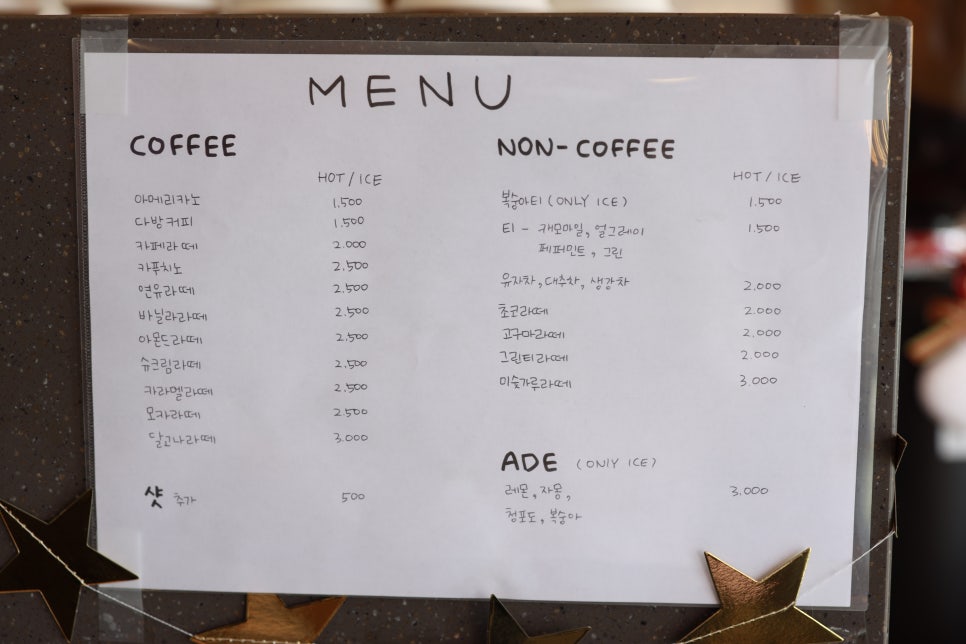 MENU
COFFEE
HOT / ICE
아메리카노 1.500
다방커피 1.500
카페라떼 2.000
카푸치노 2.500
연유라떼 2.500
바닐라라떼 2.500
아몬드라떼 2.500
슈크림라떼 2.500
카라멜라떼 2.500
모카라떼 2.500
달고나라떼 3.000
샷 추가 500
NON-COFFEE
HOT / ICE
복숭아티 (ONLY ICE) 1.500
티 - 캐모마일, 얼그레이 1.500
페퍼민트, 그린
유자차, 대추차, 생강차 2.000
초코라떼 2.000
고구마라떼 2.000
그린티라떼 2.000
미숫가루라떼 3.000
ADE (ONLY ICE)
레몬, 자몽, 3.000
청포도, 복숭아